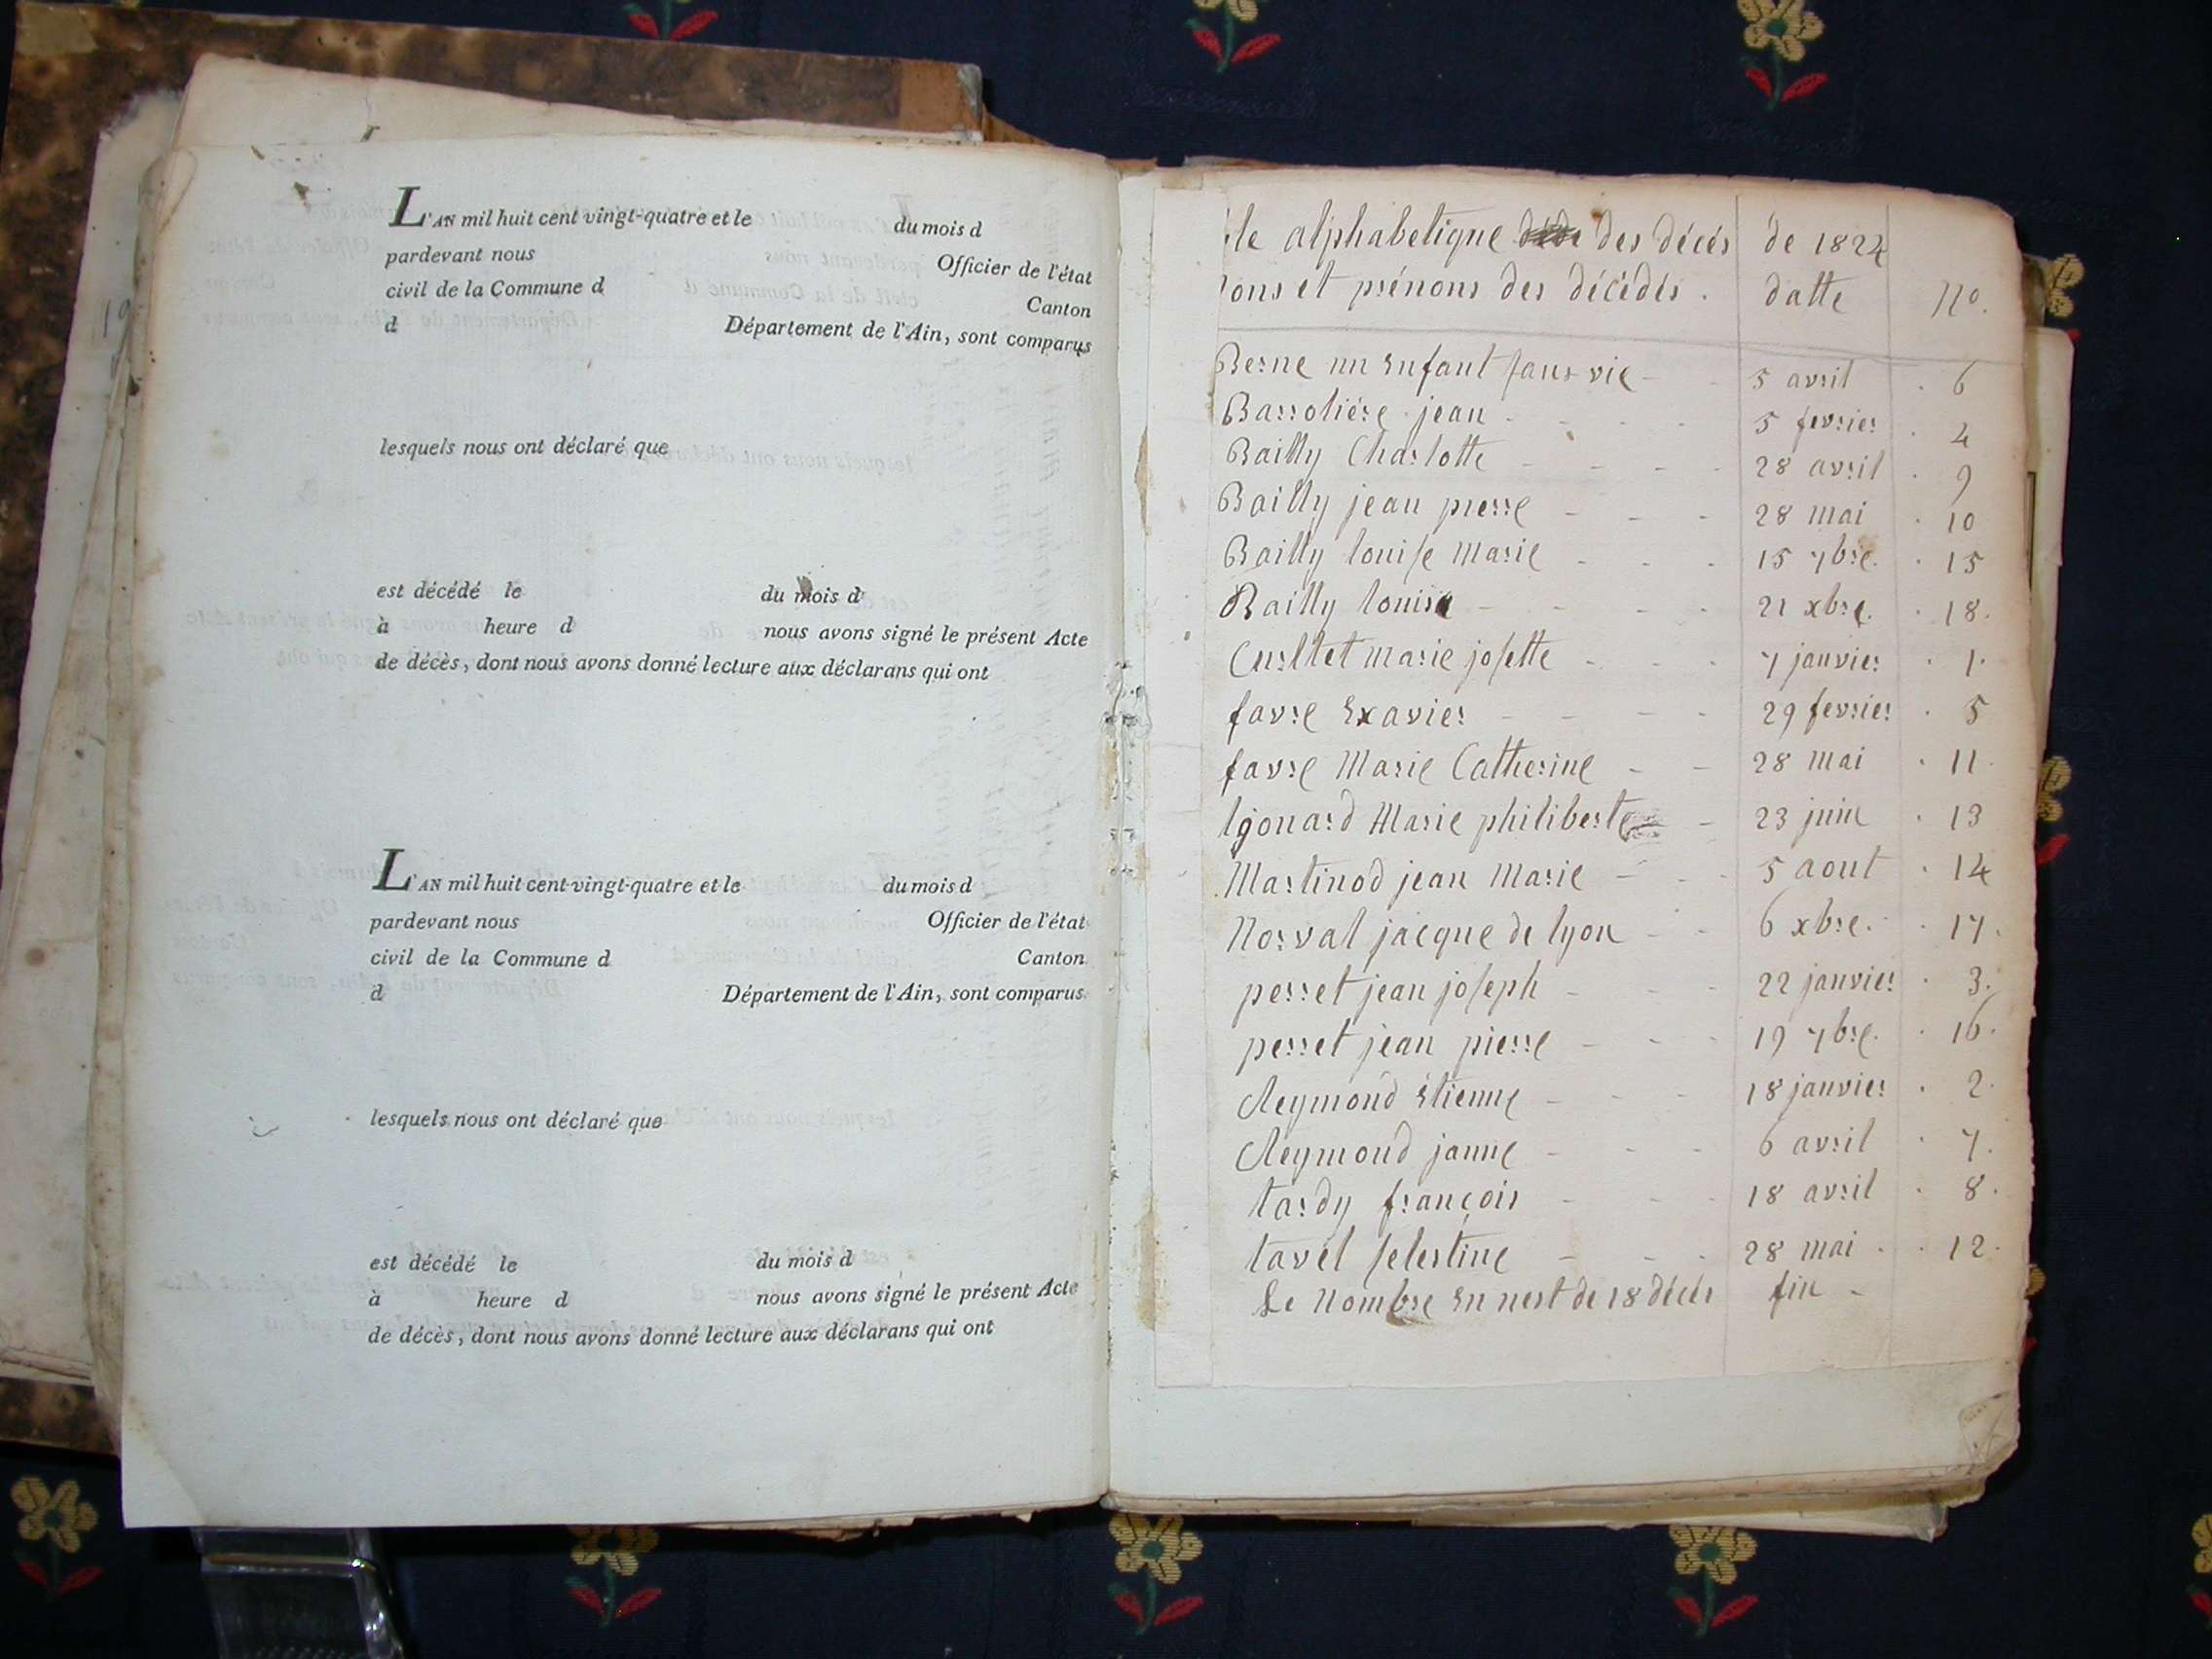 L'AN mil huit cent vingt-quatre et le du mois d
pardevant nous Officier de l'état
civil de la Commune d Canton
d Département de l'Ain, sont comparus
lesquels nous ont déclaré que
est décédé le du mois d
à heure d nous avons signé le présent Acte
de décès, dont nous avons donné lecture aux déclarans qui ont
L'AN mil huit cent vingt-quatre et le du mois d
pardevant nous Officier de l'état
civil de la Commune d Canton
d Département de l'Ain, sont comparus
lesquels nous ont déclaré que
est décédé le du mois d
à heure d nous avons signé le présent Acte
de décès, dont nous avons donné lecture aux déclarans qui ont
le alphabetique des décés de 1824
ons et prénons des décédés. datte no.
Berne un enfant sans vie 5 avril 6
Barroliére jean 5 fevrier 4
Bailly Charlotte 28 avril 9
Bailly jean pierre 28 mai 10
Bailly louise marie 15 7bre. 15
Bailly louise 21 xbre. 18.
Curltet marie josette 7 janvier 1.
favre Exavier 29 fevrier 5
favre Marie Catherine 28 mai 11
lyonard Marie philiberte 23 juin 13
Martinod jean Marie 5 aout 14
Norval jacque de lyon 6 xbre. 17.
perret jean joseph 22 janvier 3.
perret jean pierre 19 7bre. 16.
Reymond étienne 18 janvier 2.
Reymond janne 6 avril 7.
tardy françois 18 avril 8.
tavel selestine 28 mai 12.
Le nombre en nest de 18 décés fin